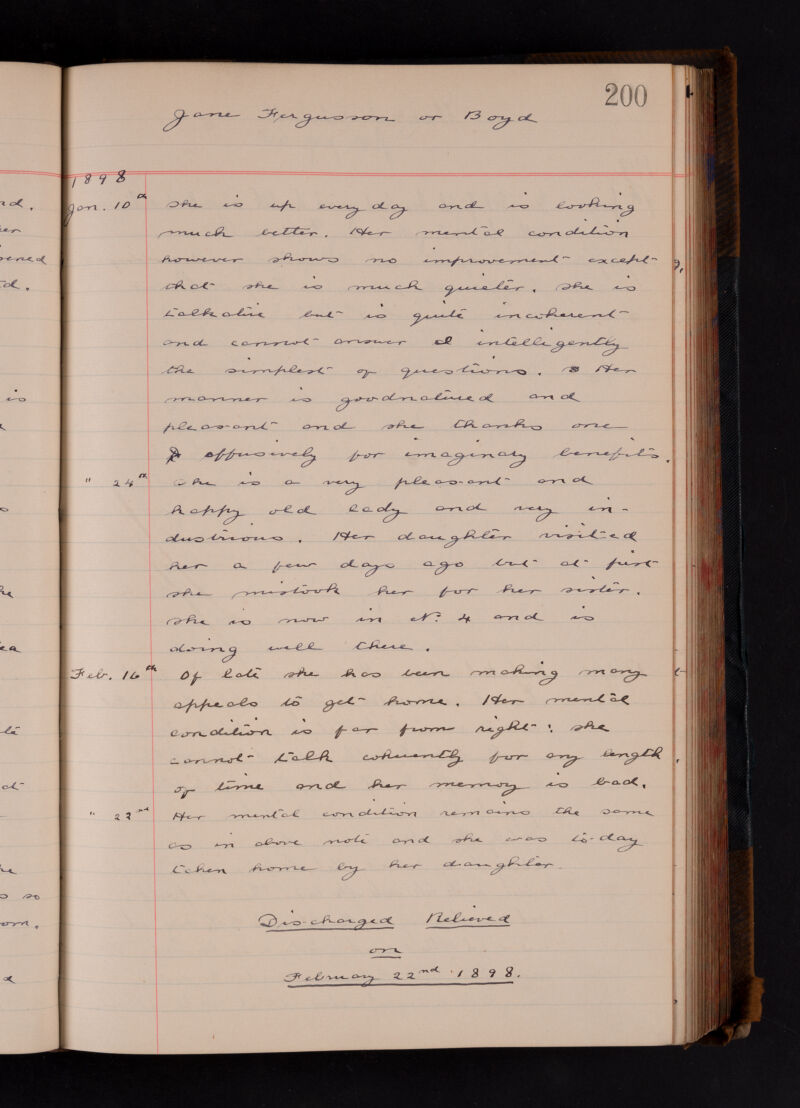 200
Jane Fergusson or Boyd
1898
Jan. 10th She is up every day and is looking
much better. Her mental condition
however shows no improvement except
that she is much quieter. She is
talkative but is quite incoherent
and cannot answer intelligently
the simplest of questions. Her
manner is goodnatured and
pleasant and she thanks one
effusively for imaginary benefits.
" 24th She is a very pleasant and
happy old lady and very in-
dustrious. Her daughter visited
her a few days ago but at first
she mistook her for her sister.
She is now in No. 4 and is
doing well there.
Feb. 16th Of late she has been making many
appeals to get home. Her mental
condition is far from right: she
cannot talk coherently for any length
of time and her memory is bad.
" 22nd Her mental condition remains the same
as in above note and she was to-day
taken home by her daughter.
Discharged Relieved
on
February 22nd 1898.